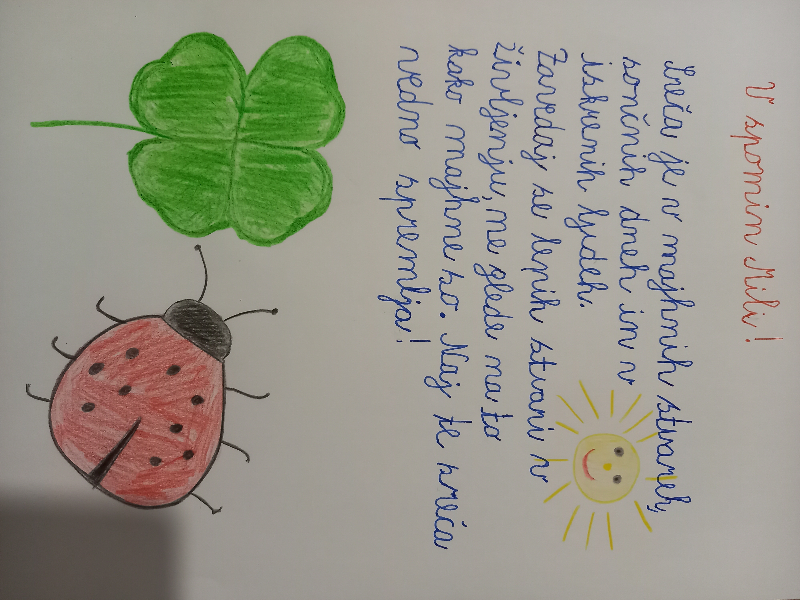 V spomin Mili!
Sreča je v majhnih stvareh,
sončnih dneh in v
iskrenih ljudeh.
Zavedaj se lepih stvari v
življenju, ne glede na to
kako majhne so. Naj te sreča
vedno spremlja!